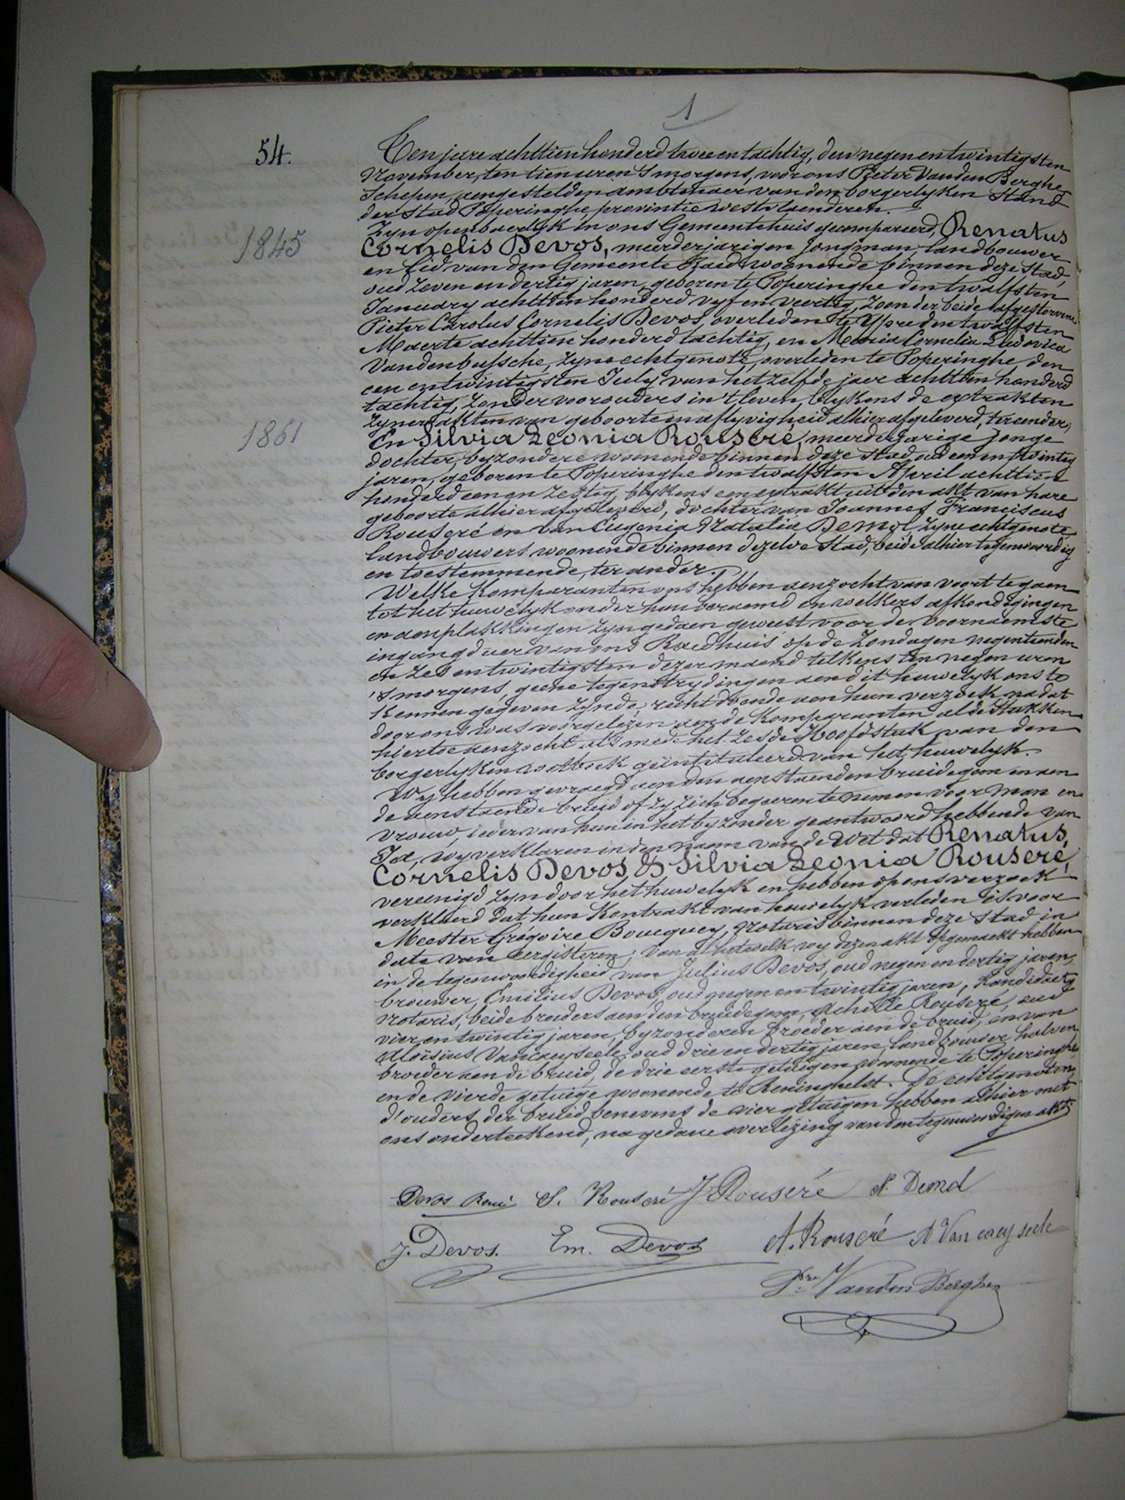 1
54.
Ten jare achttien honderd twee en tachtig, den negen en twintigsten
November, ten tien uren 's morgens, voor ons Pieter Vanden Berghe
Schepen, aengestelden ambtenaer van den borgerlyken Stand
der Stad Poperinghe provintie westvlaenderen.
Zyn openbaerlyk in ons Gemeentehuis gecompareerd, Renatus
1845
Cornelis Devos, meerderjarigen jongman, landbouwer
en Lid van den Gemeente Raed, woonende binnen deze stad,
oud zeven en dertig jaren, geboren te Poperinghe den twalfsten
January achttien honderd vyf en veertig, zoon der beide afgestorvene
Pieter Carolus Cornelis Devos, overleden te Ypre den twalfsten
Maerte achttien honderd tachtig, en Maria Cornelia Ludovica
Vandenbussche, zyne echtgenote, overleden te Poperinghe den
een en twintigsten July van het zelfde jaer achttien honderd
tachtig, zonder voorouders in 't leven, blykens de extrakten
zyner akten van geboorte en aflyvigheid alhier afgeleverd, ter eender,
1861
En Silvia Leonia Rouseré, meerderjarige jonge
dochter, byzondere woonende binnen deze stad, oud een en twintig
jaren, geboren te Poperinghe den twalfsten April achttien
honderd een en zestig, blykens een extrakt uit den akt van hare
geboorte alhier afgeleverd, dochter van Joannes Franciscus
Rouseré en van Eugenia Natalia Demol, zyne echtgenote,
landbouwers woonende binnen dezelve stad, beide alhier tegenwoordig
en toestemmende, ter ander.
Welke komparanten ons hebben aenzocht van voort te gaen
tot het huwelyk onder hun beraemd en welkers afkondigingen
en aenplakkingen zyn gedaen geweest voor de voornaemste
ingangdeur van ons Raedhuis op de Zondagen negentienden
en zes en twintigsten dezer maend telkens ten negen uren
's morgens, geene tegenstrydingen aen dit huwelyk ons te
kennen gegeven zynde, recht doende aen hun verzoek na dat
door ons was voorgelezen aen de komparanten al de stukken
hiertoe aenzocht als mede het zesde Hoofdstuk van den
borgerlyken wetboek geïntituleerd van het huwelyk.
Wy hebben gevraegd aen den aenstaenden bruidegom en aen
de aenstaende bruid of zy zich begeeren te nemen voor man en
vrouw, ieder van hun in het byzonder geantwoord hebbende van
Ja, wy verklaren in den naem van de Wet dat Renatus
Cornelis Devos, & Silvia Leonia Rouseré,
vereenigd zyn door het huwelyk en hebben op ons verzoek
verklaerd dat hun kontrakt van huwelyk verleden is voor
Meester Grégoire Boucquey, Notaris binnen deze Stad, in
date van eergisteren; Van al hetwelk wy dezen akt opgemaekt hebben
in de tegenwoordigheid van Julius Devos, oud negen en dertig jaren,
brouwer, Emilius Devos, oud negen en twintig jaren, kandidaet
Notaris, beide broeders aen den bruidegom, Achille Rouseré, oud
vier en twintig jaren, byzonderen broeder aen de bruid, en van
Aloisius Vancayseele oud drie en dertig jaren, landbouwer, halven
broeder aen de bruid, de drie eerste getuigen woonende te Poperinghe
en de vierde getuige woonende te Reninghelst. De echtgenoten,
d'ouders der bruid benevens de vier getuigen hebben alhier met
ons onderteekend, na gedane overlezing van den tegenwoordigen akt.
Devos René S. Rouseré J. Rouseré N. Demol
J. Devos. Em. Devos A. Rouseré A. Vancayseele
Vanden Berghe